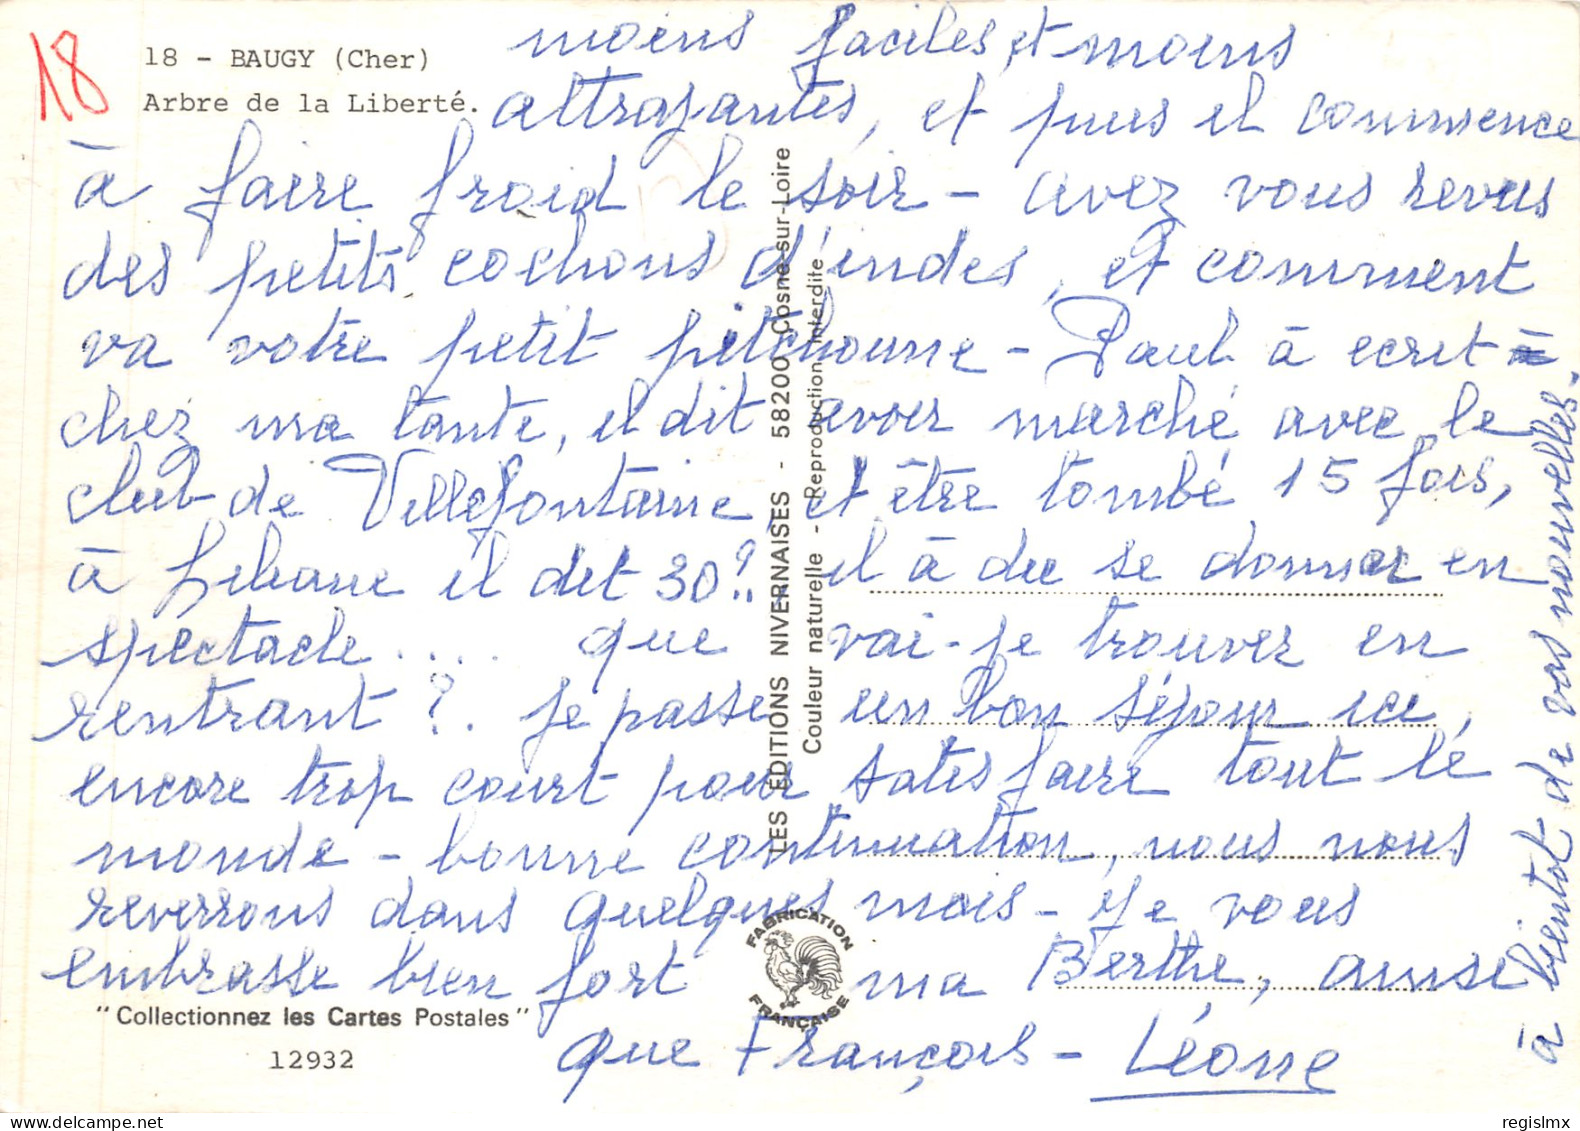 18
18 - BAUGY (Cher)
Arbre de la Liberté.
moins faciles, et moins
attrayantes, et puis il commence
à faire froid le soir - avez vous revus
des petits cochons d'indes, et comment
va votre petit pitchoune - Paul à ecrit à
chez ma tante, il dit avoir marché avec le
club de Villefontaine et être tombé 15 fois,
à Liliane il dit 30? il à du se donner en
spectacle.... que vai-je trouver en
rentrant ?. je passe un bon séjour ici,
encore trop court pour satisfaire tout le
monde - bonne continuation, nous nous
reverrons dans quelques mois - Je vous
embrasse bien fort ma Berthe, ainsi
que François - Léone
à bientot de vos nouvelles.
LES ÉDITIONS NIVERNAISES - 58200 Cosne-sur-Loire
Couleur naturelle - Reproduction interdite
FABRICATION FRANÇAISE
"Collectionnez les Cartes Postales"
12932
regislmx